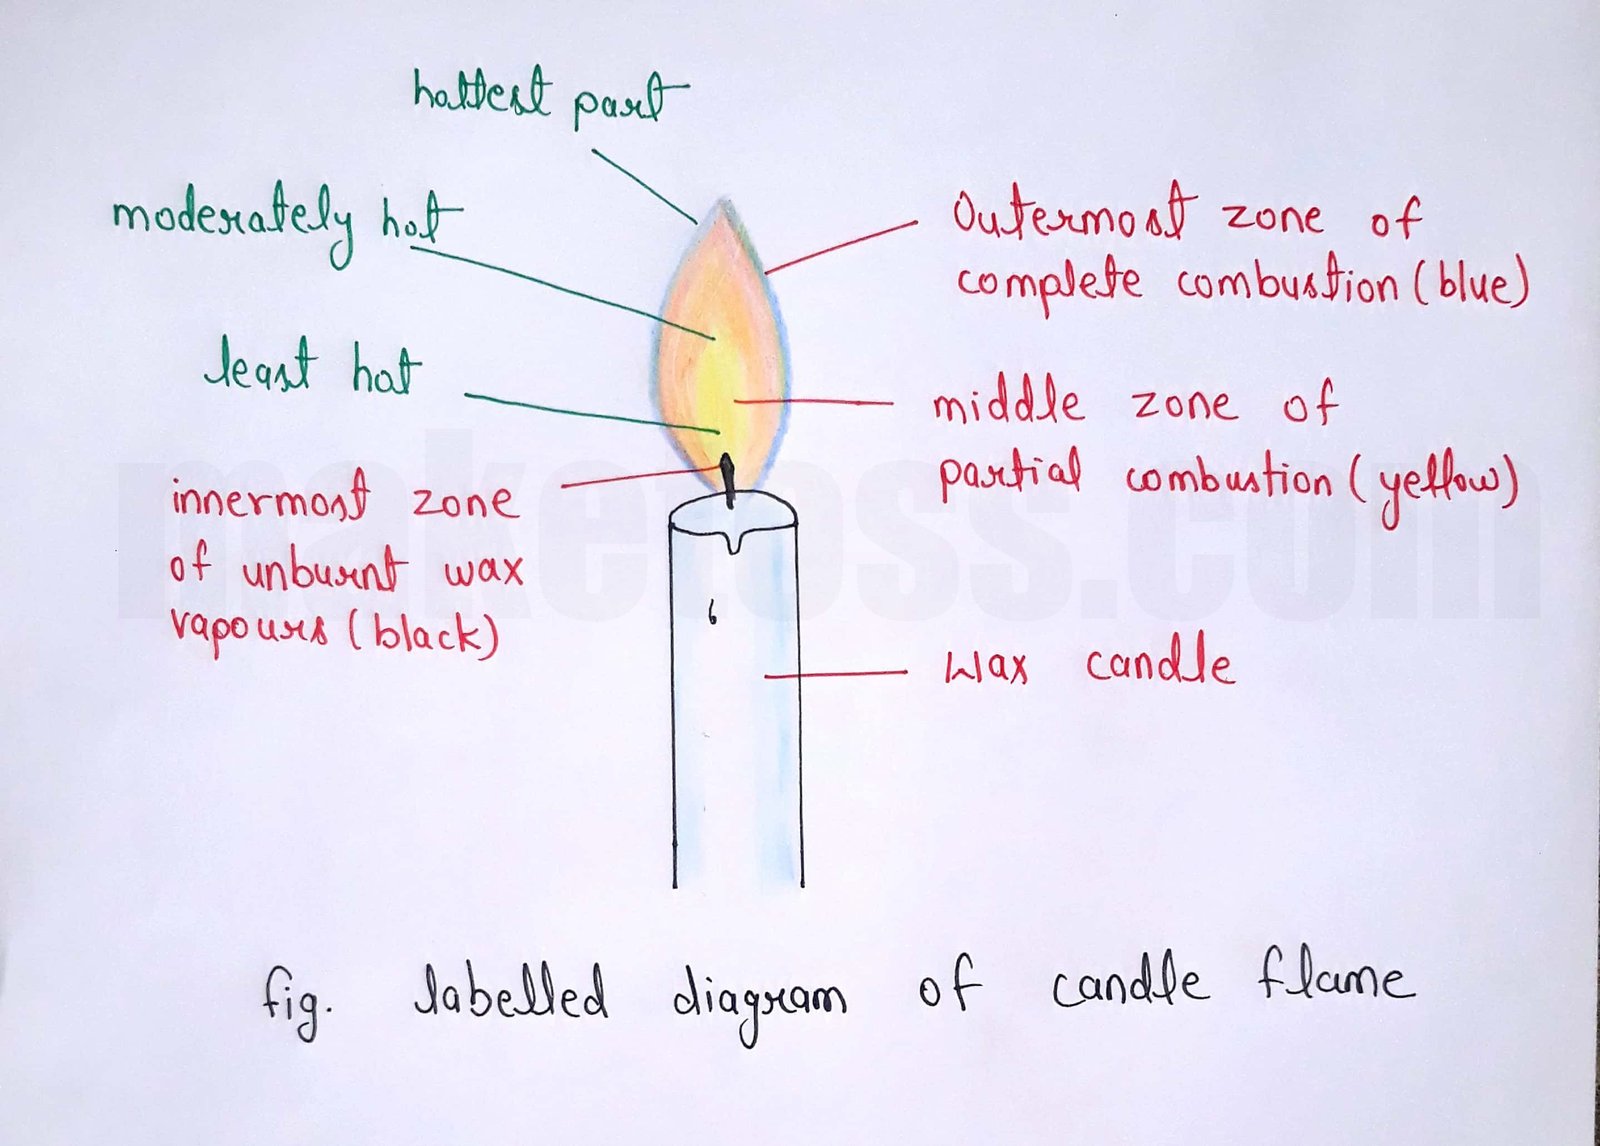 hottest part
moderately hot
least hot
innermost zone
of unburnt wax
vapours (black)
Outermost zone of
complete combustion (blue)
middle zone of
partial combustion (yellow)
wax candle
fig. labelled diagram of candle flame
maketoss.com